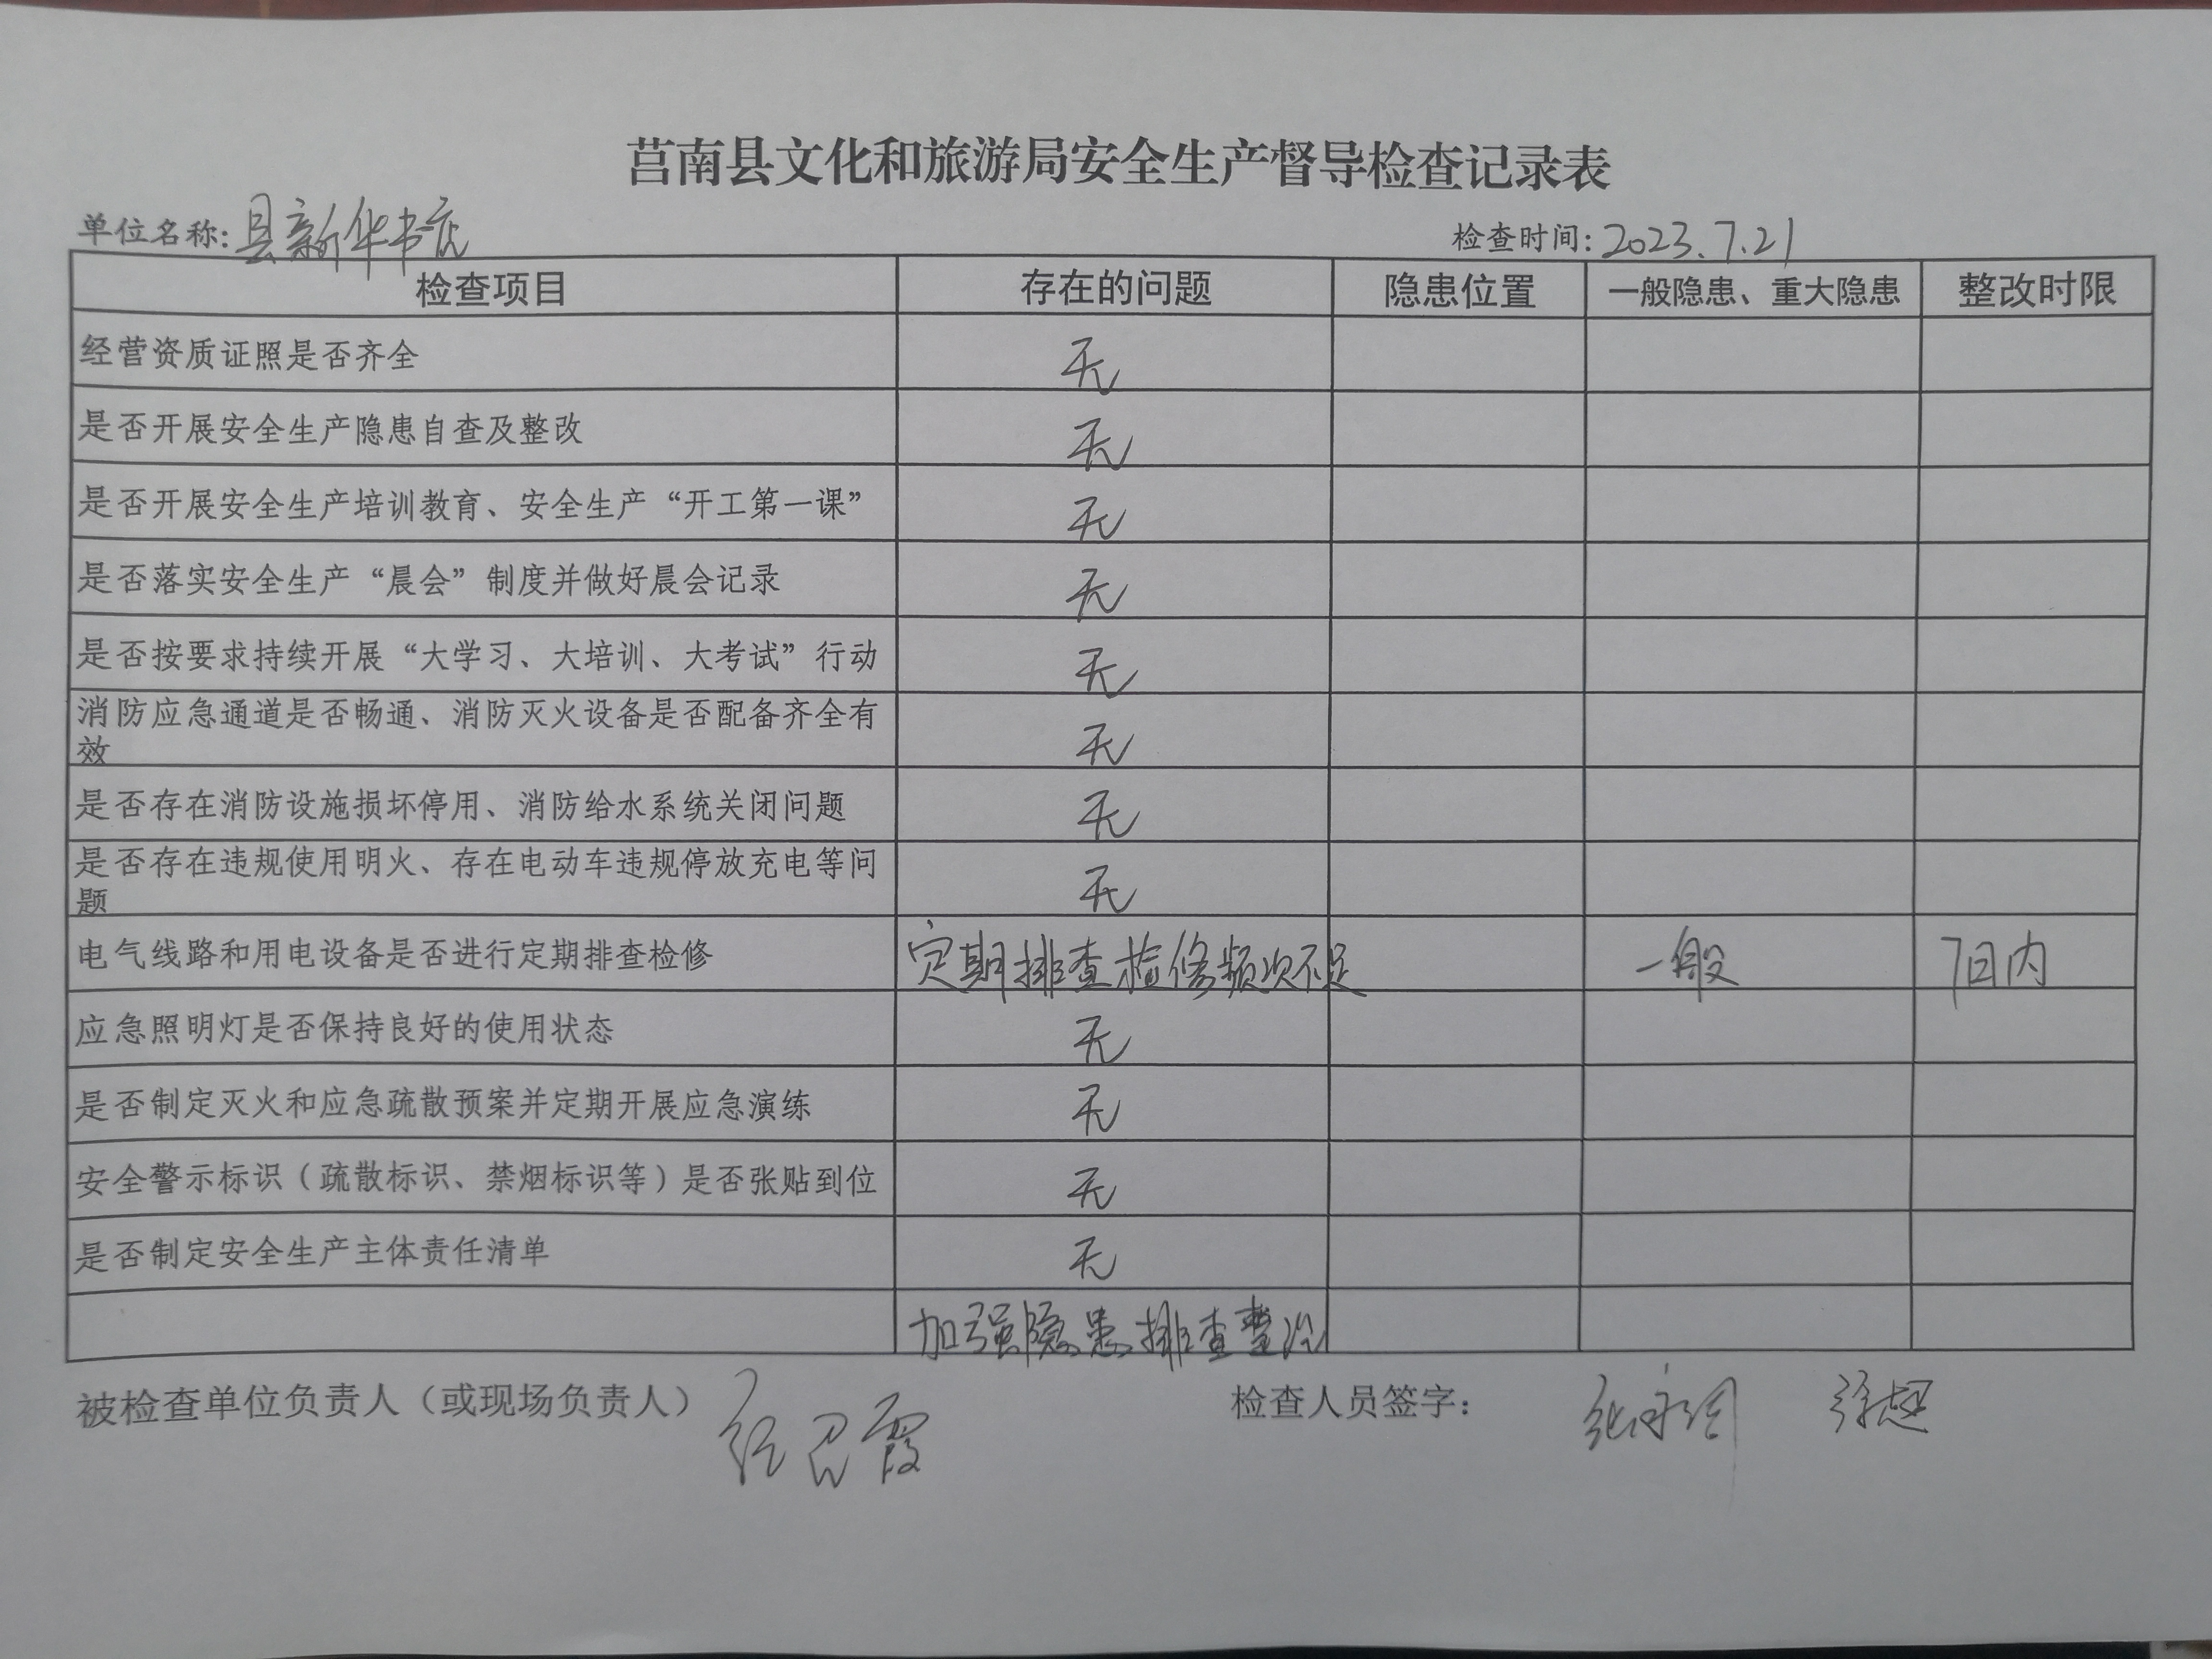 莒南县文化和旅游局安全生产督导检查记录表
单位名称:县新华书店 检查时间:2023.7.21
检查项目 存在的问题 隐患位置 一般隐患、重大隐患 整改时限
经营资质证照是否齐全 无
是否开展安全生产隐患自查及整改 无
是否开展安全生产培训教育、安全生产“开工第一课” 无
是否落实安全生产“晨会”制度并做好晨会记录 无
是否按要求持续开展“大学习、大培训、大考试”行动 无
消防应急通道是否畅通、消防灭火设备是否配备齐全有
效 无
是否存在消防设施损坏停用、消防给水系统关闭问题 无
是否存在违规使用明火、存在电动车违规停放充电等问
题 无
电气线路和用电设备是否进行定期排查检修 定期排查检修频次不足 一般 7日内
应急照明灯是否保持良好的使用状态 无
是否制定灭火和应急疏散预案并定期开展应急演练 无
安全警示标识（疏散标识、禁烟标识等）是否张贴到位 无
是否制定安全生产主体责任清单 无
加强隐患排查整治
被检查单位负责人（或现场负责人） 检查人员签字： 徐超